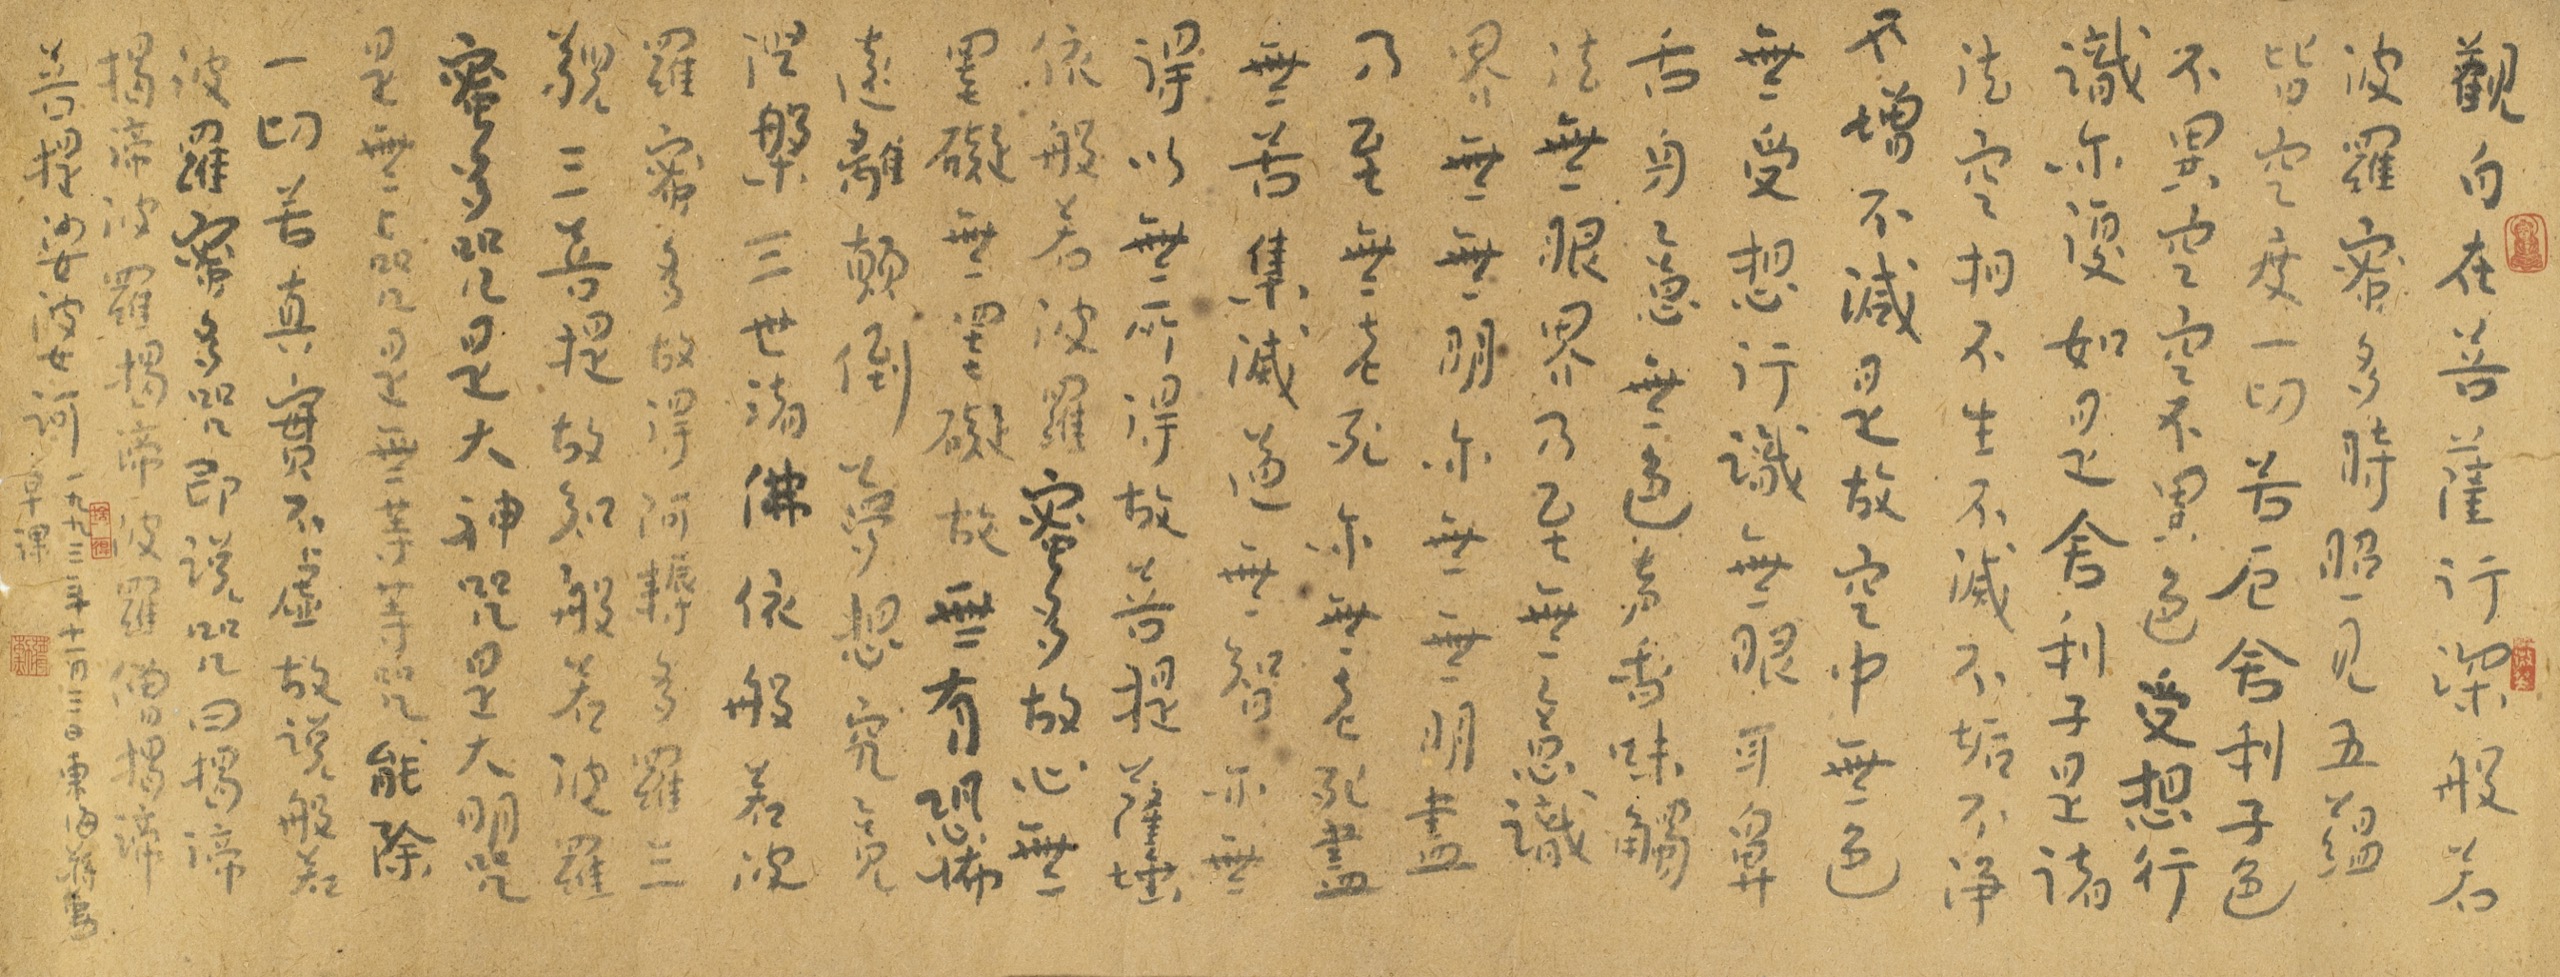 觀自在菩薩行深般若
波羅蜜多時照見五蘊
皆空度一切苦厄舍利子色
不異空空不異色受想行
識亦復如是舍利子是諸
法空相不生不滅不垢不淨
不增不減是故空中無色
無受想行識無眼耳鼻
舌身意無色聲香味觸
法無眼界乃至無意識
界無無明亦無無明盡
乃至無老死亦無老死盡
無苦集滅道無智亦無
得以無所得故菩提薩埵
依般若波羅蜜多故心無
罣礙無罣礙故無有恐怖
遠離顛倒夢想究竟
涅槃三世諸佛依般若波
羅蜜多故得阿耨多羅三
藐三菩提故知般若波羅
蜜多咒是大神咒是大明咒
是無上咒是無等等咒能除
一切苦真實不虛故說般若
波羅蜜多咒即說咒曰揭諦
揭諦波羅揭諦波羅僧揭諦
菩提 婆訶 一九九三年十一月三日東海